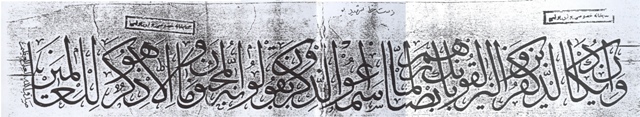 وان يكاد الذين كفروا ليزلقونك بابصارهم لما سمعوا الذكر ويقولون انه لمجنون وما هو الا ذكر للعالمين